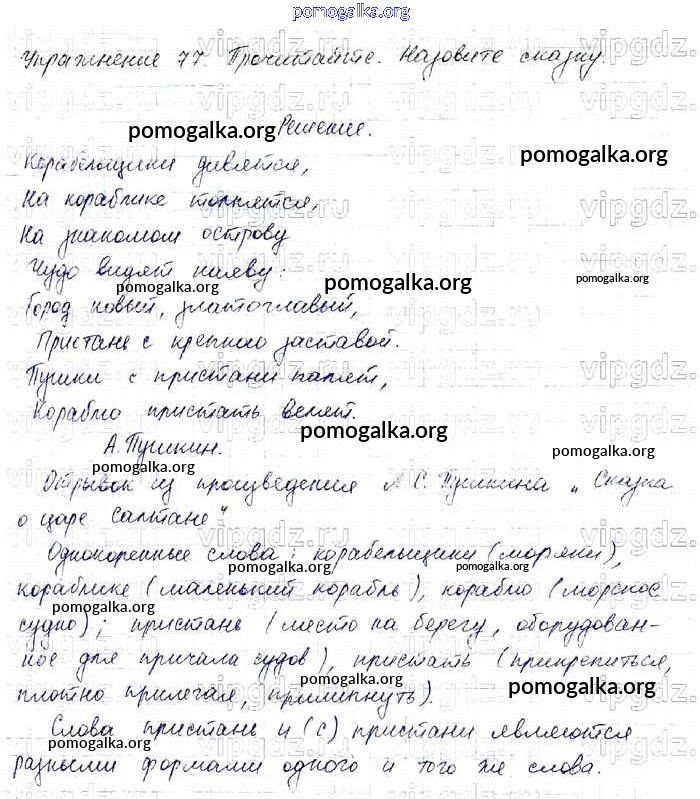 pomogalka.org
Упражнение 77. Прочитайте. Назовите сказку.
vipgdz.ru
pomogalka.org Решение. pomogalka.org
Корабельщики дивятся,
vipgdz.ru
На кораблике толпятся,
vipgdz.ru
На знакомом острову
vipgdz.ru
Чудо видят наяву:
pomogalka.org pomogalka.org pomogalka.org
Город новый, златоглавый,
vipgdz.ru
Пристань с крепкою заставой.
Пушки с пристани палят,
vipgdz.ru
Кораблю пристать велят.
pomogalka.org
А. Пушкин.
pomogalka.org pomogalka.org
Отрывок из произведения А.С. Пушкина „Сказка
о царе Салтане".
Однокоренные слова: корабельщики (моряки),
pomogalka.org pomogalka.org
кораблике (маленький корабль), кораблю (морское
pomogalka.org
судно); пристань (место на берегу, оборудован-
ное для причала судов), пристать (прикрепиться,
плотно прилегая, прилипнуть).
pomogalka.org
Слова пристань и (с) пристани являются
pomogalka.org
разными формами одного и того же слова.